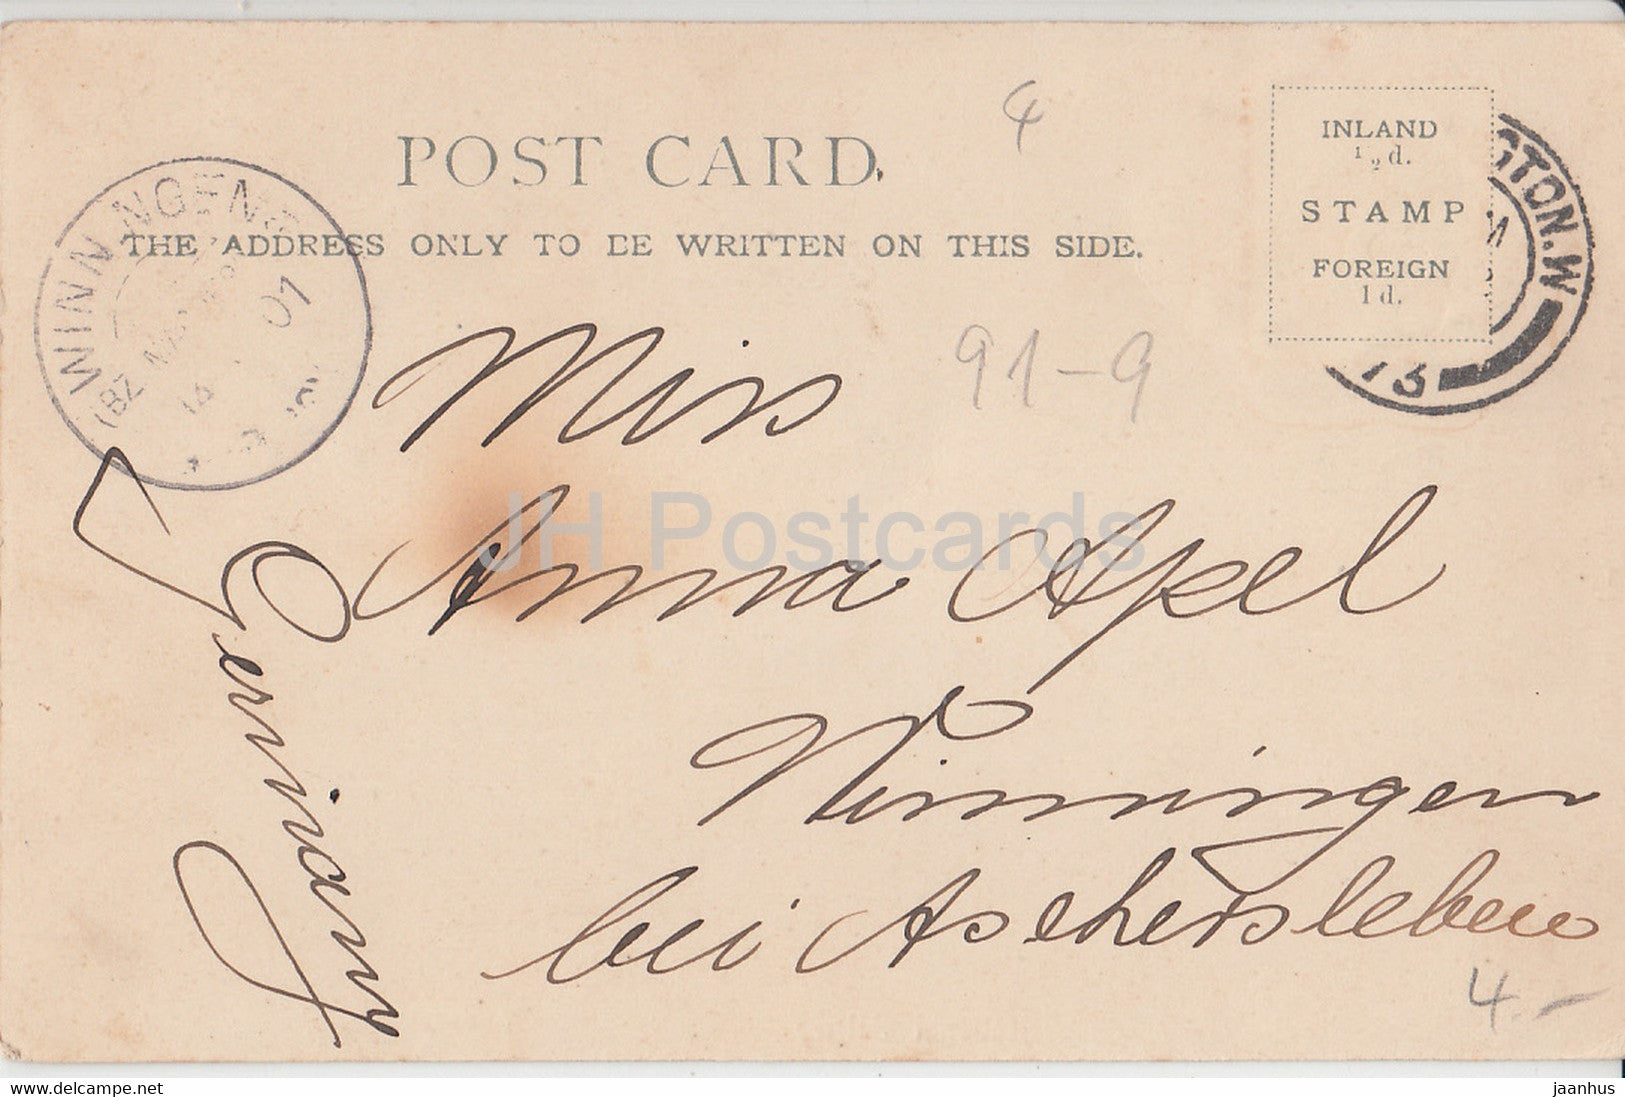 POST CARD.
THE ADDRESS ONLY TO BE WRITTEN ON THIS SIDE.
INLAND
½d.
STAMP
FOREIGN
1d.
GTON.W
73
WINNINGEN
(BZ MAG
14 01
4
91-9
Miss
Anna Apel
Winningen
bei Aschersleben
Germany
4.-
JH Postcards
www.delcampe.net
jaanhus